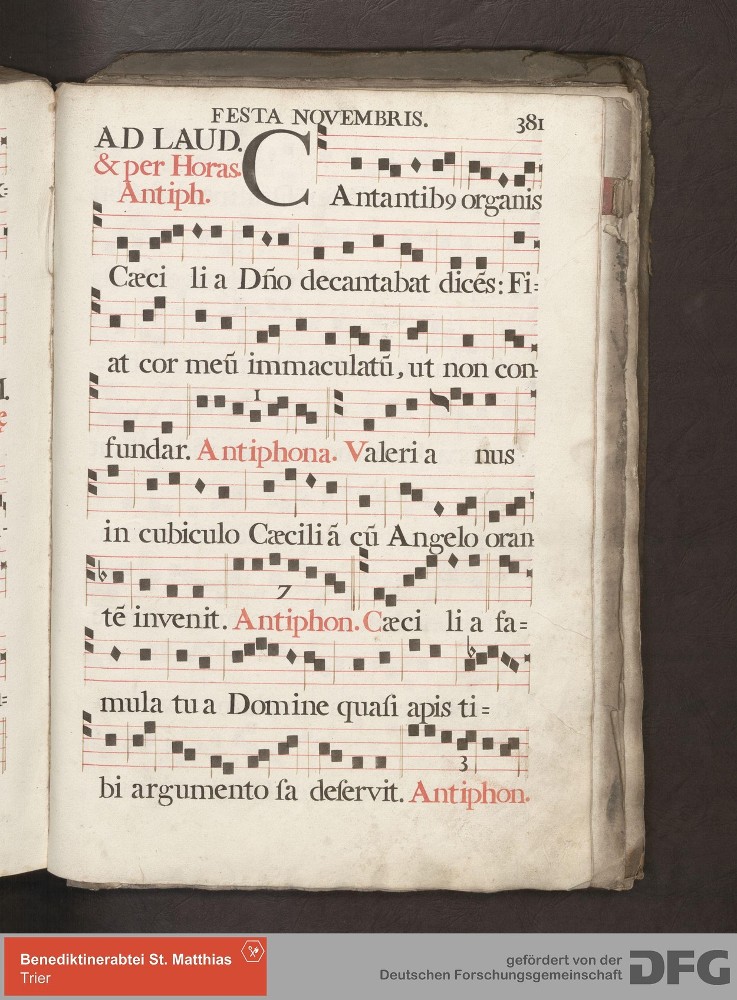 FESTA NOVEMBRIS. 381
AD LAUD.
& per Horas.
Antiph.
CAntantibꝰ organis
Cæci li a Dño decantabat dicẽs: Fi=
at cor meũ immaculatũ, ut non con-
1
fundar. Antiphona. Valeri a nus
in cubiculo Cæcili ã cũ Angelo oran
7
tẽ invenit. Antiphon. Cæci li a fa=
mula tu a Domine quaſi apis ti=
3
bi argumento ſa deſervit. Antiphon.
Benediktinerabtei St. Matthias
Trier
gefördert von der
Deutschen Forschungsgemeinschaft
DFG